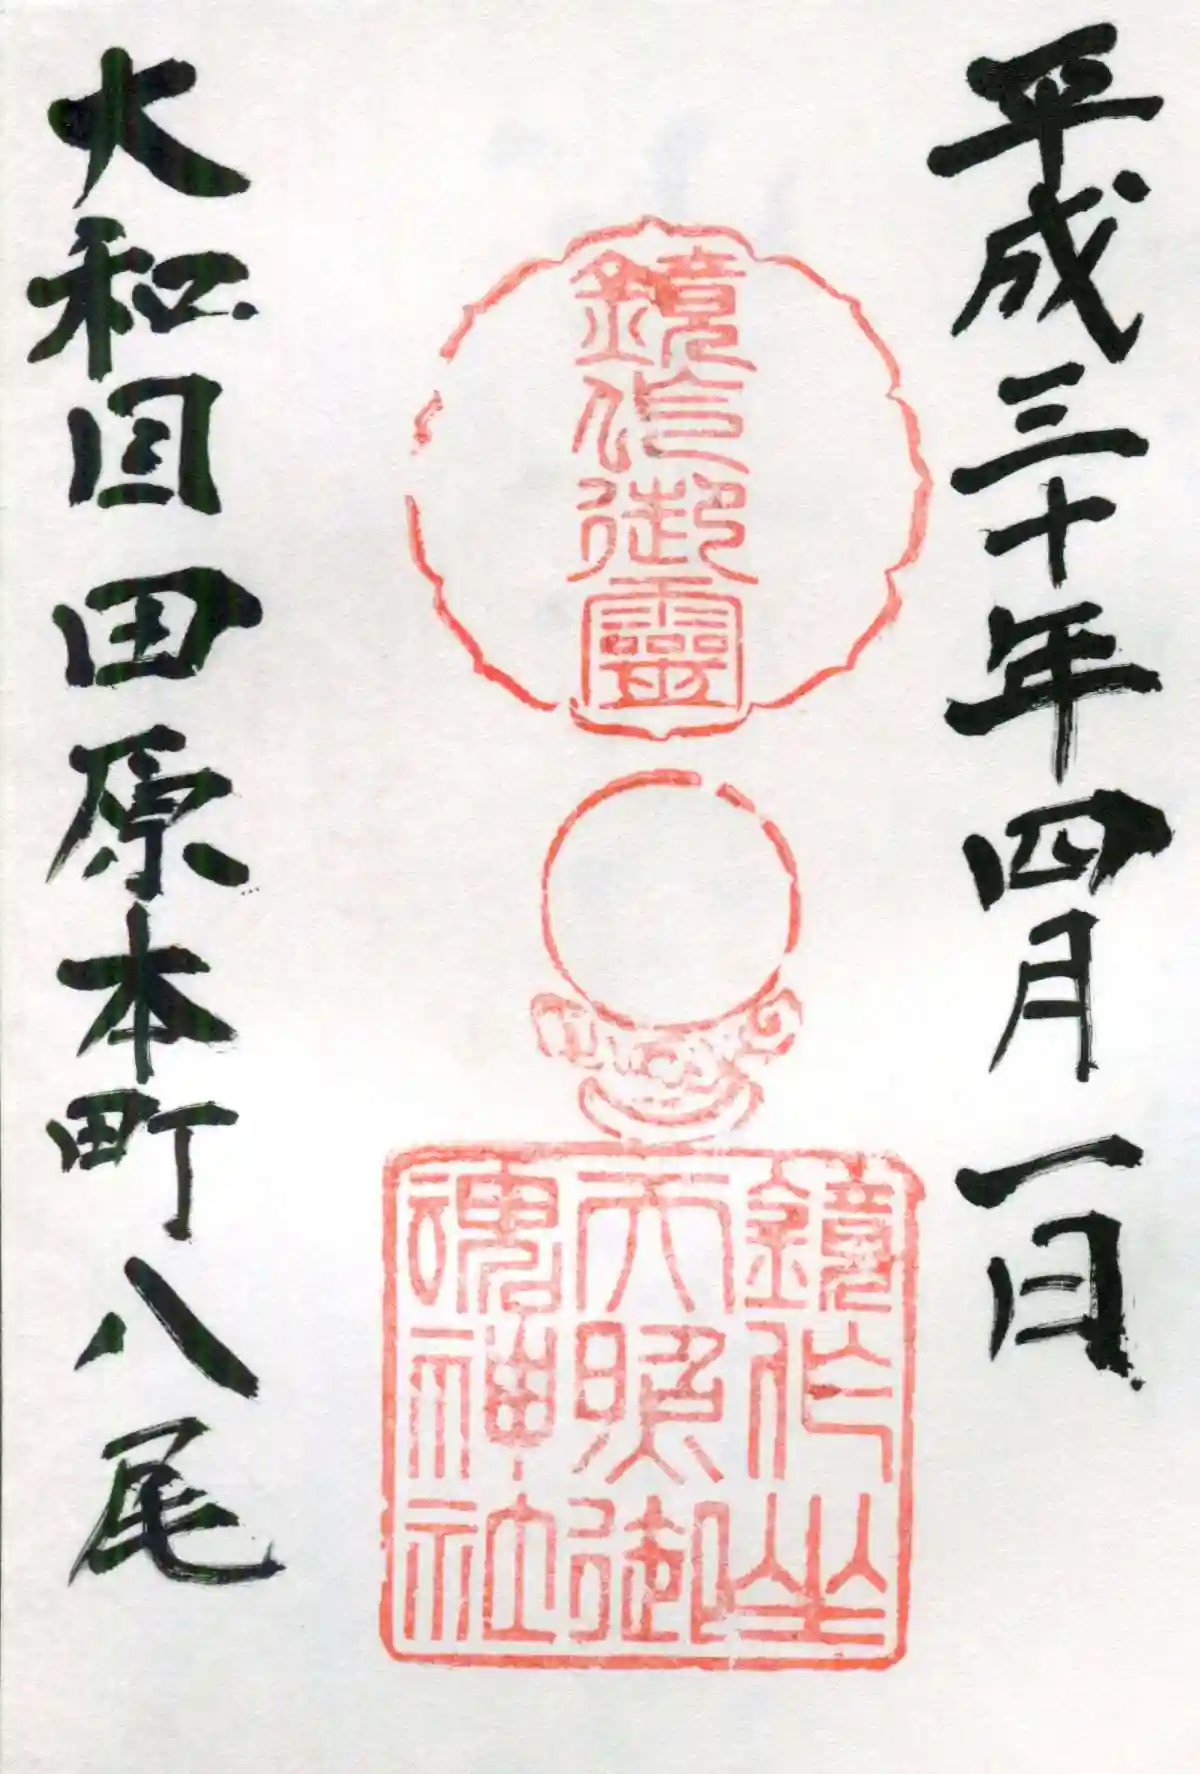 平成三十年四月一日
鏡作御霊
鏡作坐
天照御
魂神社
大和国田原本町八尾